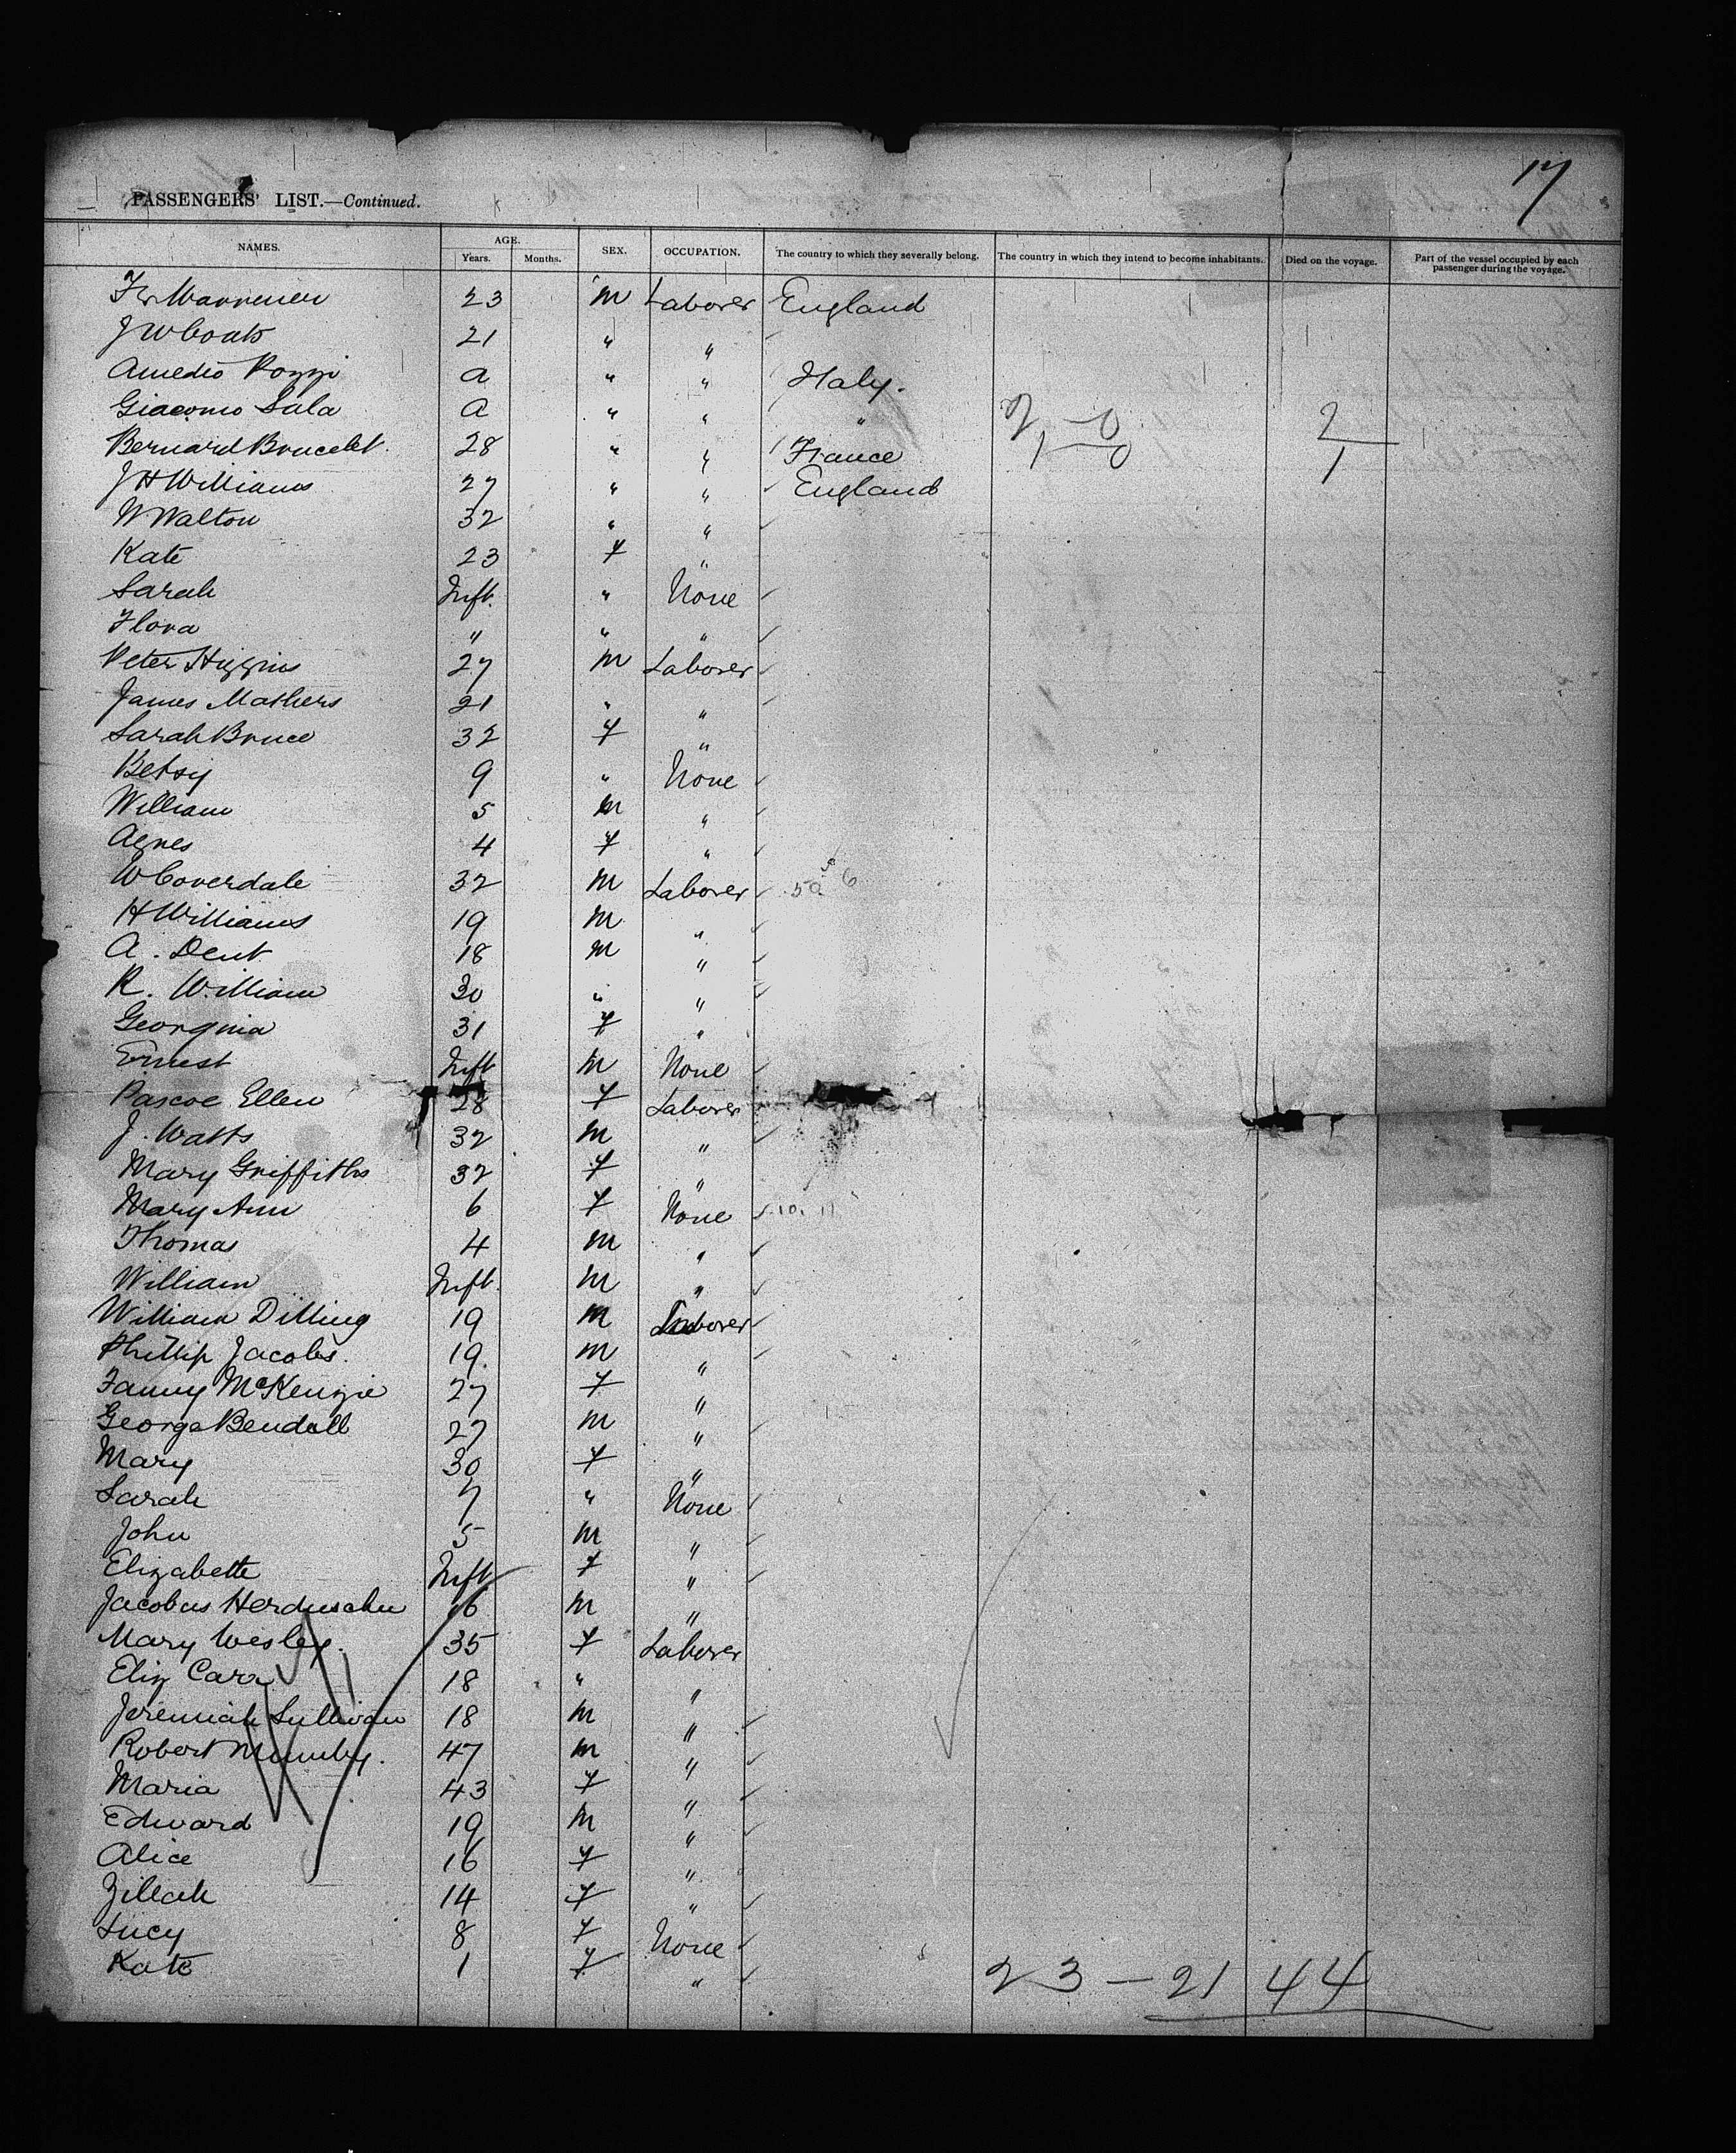 17
PASSENGERS' LIST.—Continued.
NAMES. AGE. Years. Months. SEX. OCCUPATION. The country to which they severally belong. The country in which they intend to become inhabitants. Died on the voyage. Part of the vessel occupied by each passenger during the voyage.
23 m Laborer England
J W Coats 21 " "
Amedio Pozzi a " " Italy.
Giacomo Sala a " " " 2 — 0 2
Bernard 28 " " France 1 — 0 1
J H Williams 27 " " England
W Walton 32 " "
Kate 23 f "
Sarah Inft. " None
Flora " " "
Peter Higgins 27 m Laborer
James Mathers 21 " "
Sarah Bruce 32 f "
Betsy 9 " None
William 5 m "
Agnes 4 f "
W Coverdale 32 m Laborer
H Williams 19 m "
A. Dent 18 m "
R. William 30 " "
Georgina 31 f "
Ernest Inft m None
Pascoe Ellen 28 f Laborer
J. Watts 32 m "
Mary Griffiths 32 f "
Mary Ann 6 f None
Thomas 4 m "
William Inft. m "
William Dilling 19 m Laborer
Phillip Jacobs. 19. m "
Fanny McKenzie 27 f "
George Bendall 27 m "
Mary 30 f "
Sarah 7 " None
John 5 m "
Elizabeth Inft f "
Jacobus 16 m "
Mary Wesley. 35 f Laborer
Eliz Carr 18 " "
Jeremiah Sullivan 18 m "
Robert Mumby. 47 m "
Maria 43 f "
Edward 19 m "
Alice 16 f "
Zillah 14 f "
Lucy 8 f None
Kate 1 f "
23 — 21 44